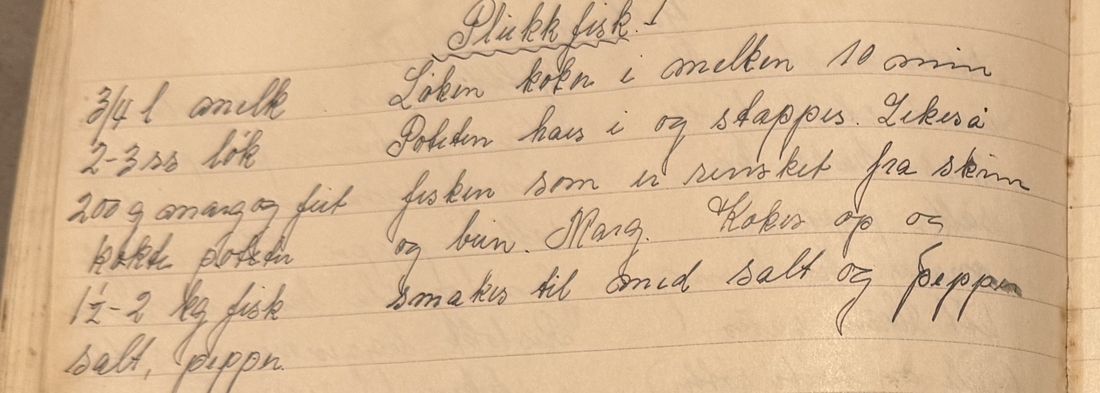 Plukkfisk. 1
3/4 l melk
2-3 ss løk
200 g marg og fett
kokte poteter
1½-2 kg fisk
salt, pepper.
Løken koker i melken 10 min
Poteten haes i og stappes. Likeså
fisken som er rensket fra skinn
og ben. Marg. Kokes op og
smakes til med salt og pepper